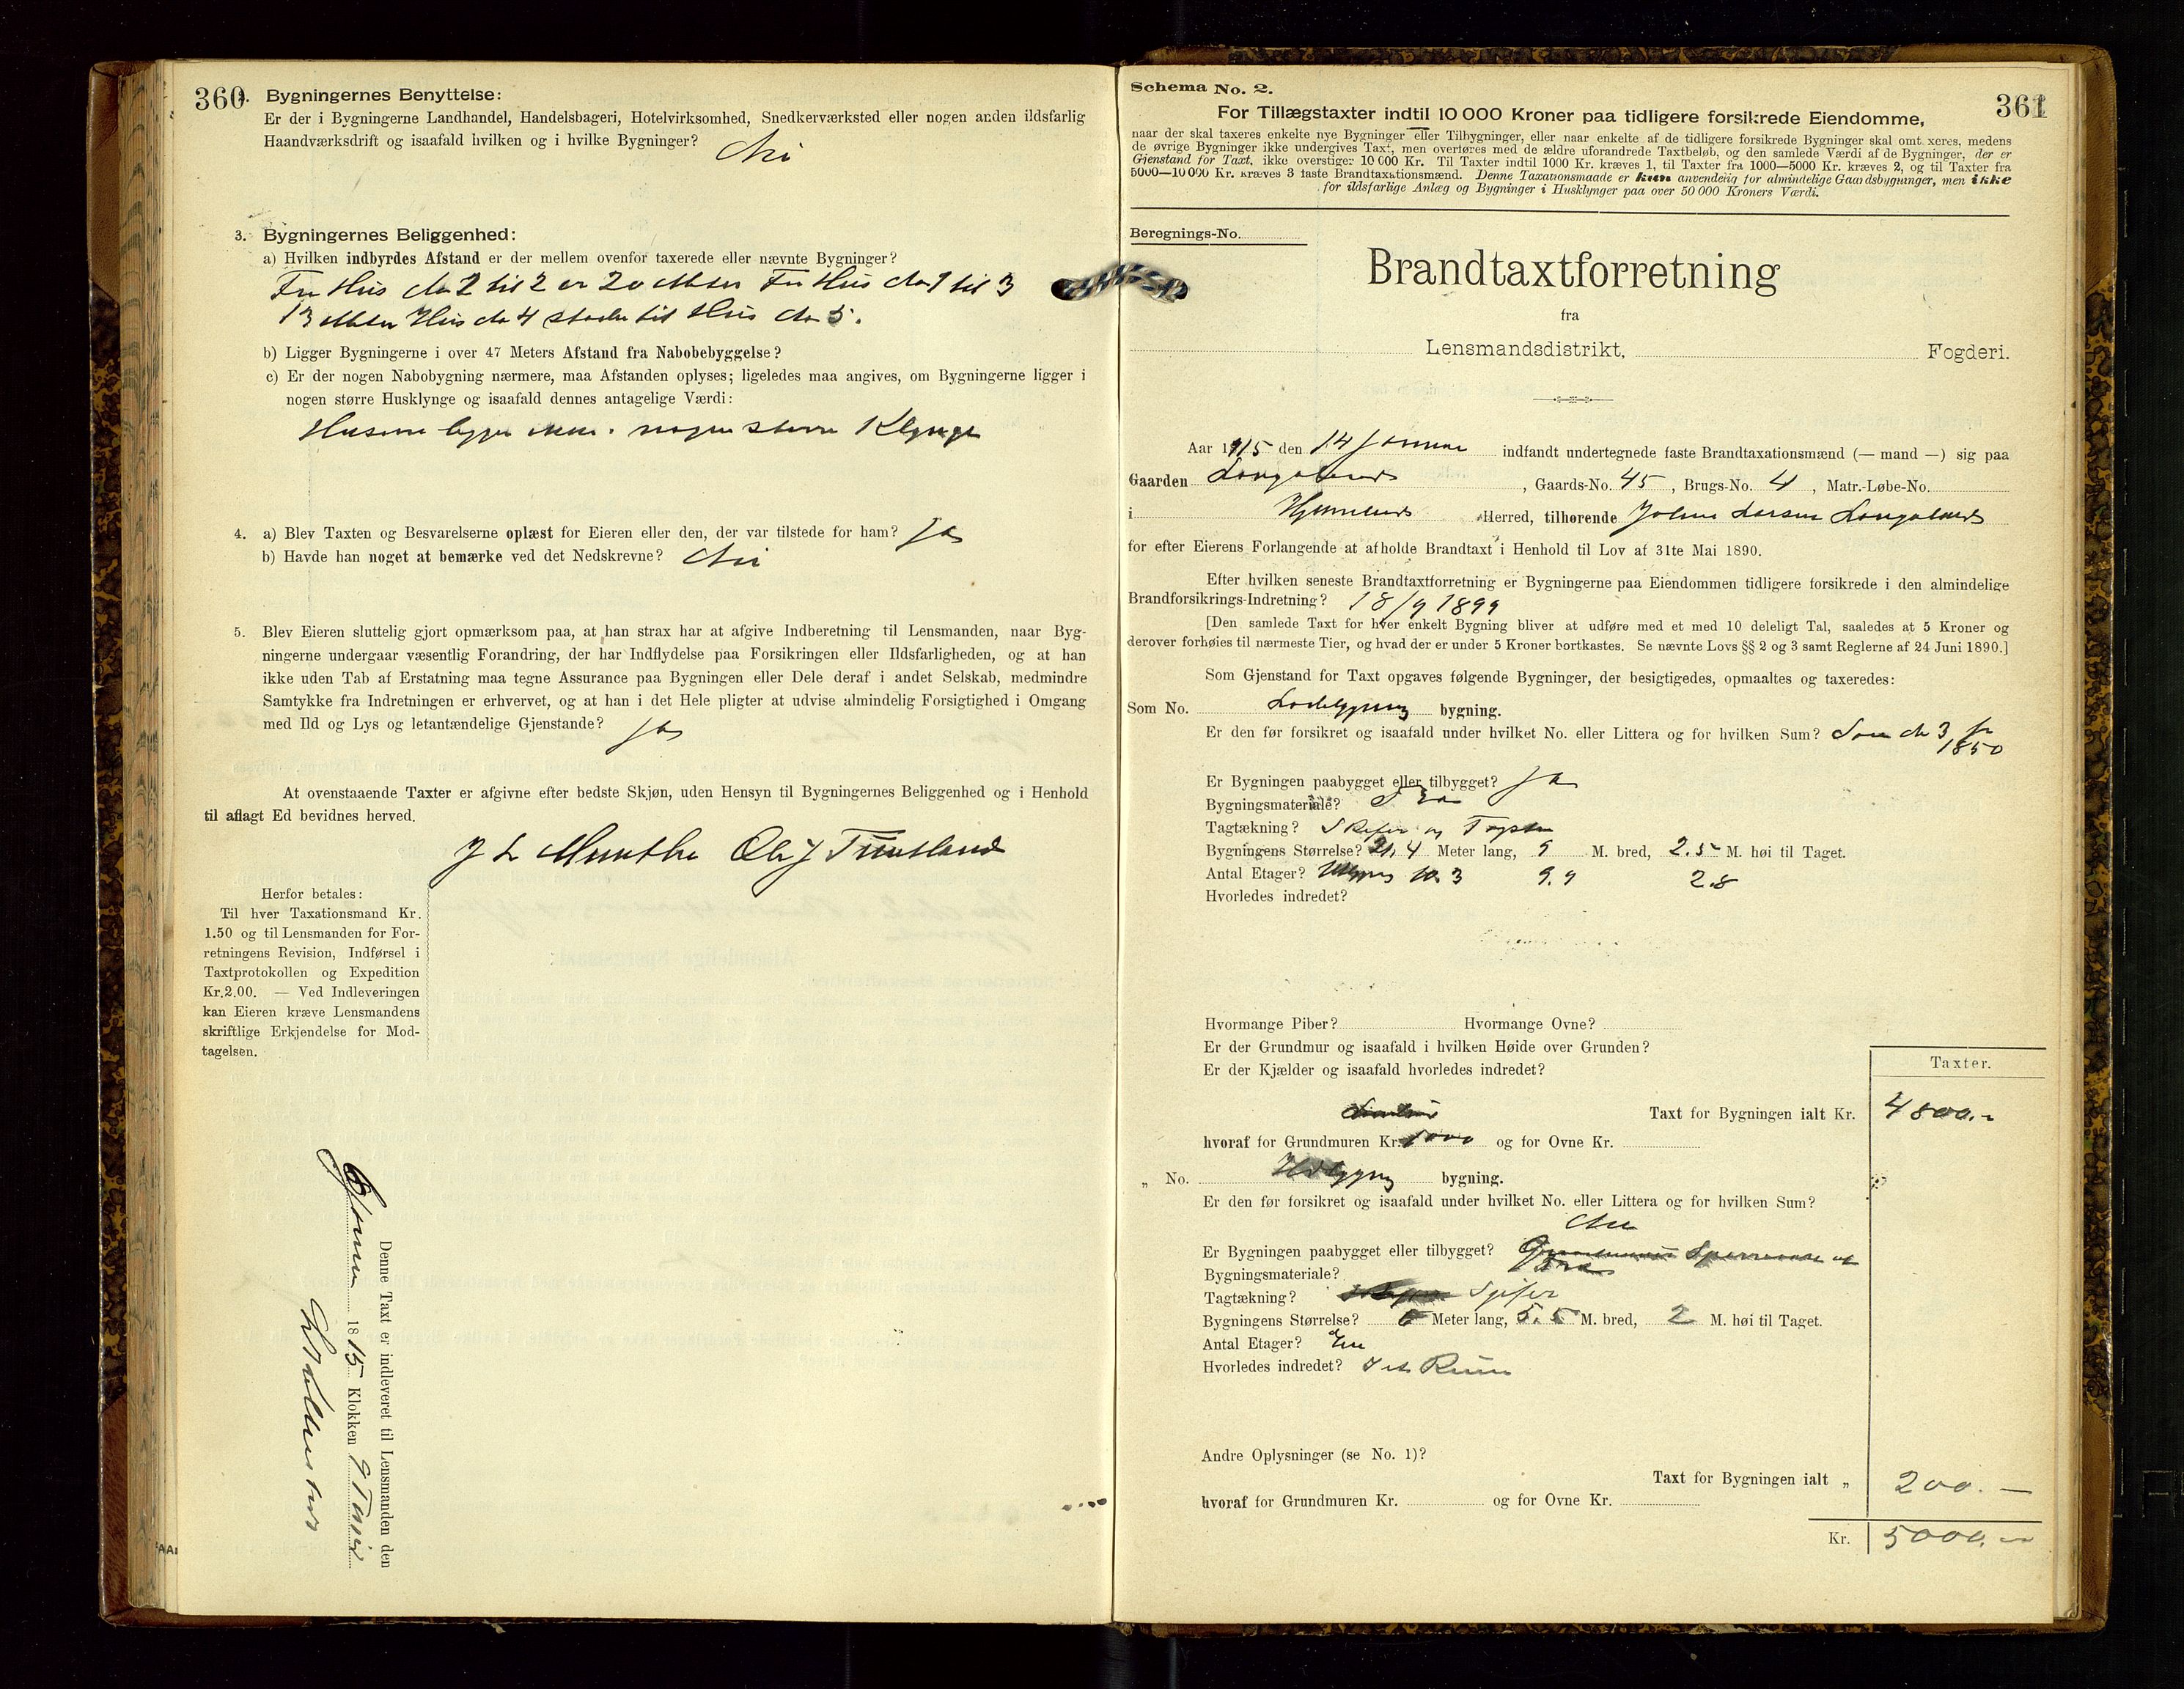 360
2. Bygningernes Benyttelse:
Er der i Bygningerne Landhandel, Handelsbageri, Hotelvirksomhed, Snedkerværksted eller nogen anden ildsfarlig
Haandværksdrift og isaafald hvilken og i hvilke Bygninger? Nei
3. Bygningernes Beliggenhed:
a) Hvilken indbyrdes Afstand er der mellem ovenfor taxerede eller nævnte Bygninger?
Fra Hus No 1 til 2 er 20 Meter Fra Hus No 1 til 3
13 Meter Hus No 4 støder til Hus No 5.
b) Ligger Bygningerne i over 47 Meters Afstand fra Nabobebyggelse?
c) Er der nogen Nabobygning nærmere, maa Afstanden oplyses; ligeledes maa angives, om Bygningerne ligger i
nogen større Husklynge og isaafald dennes antagelige Værdi:
Husene ligger ikke i nogen større Klynge
4. a) Blev Taxten og Besvarelserne oplæst for Eieren eller den, der var tilstede for ham? Ja
b) Havde han noget at bemærke ved det Nedskrevne? Nei
5. Blev Eieren sluttelig gjort opmærksom paa, at han strax har at afgive Indberetning til Lensmanden, naar Byg-
ningerne undergaar væsentlig Forandring, der har Indflydelse paa Forsikringen eller Ildsfarligheden, og at han
ikke uden Tab af Erstatning maa tegne Assurance paa Bygningen eller Dele deraf i andet Selskab, medmindre
Samtykke fra Indretningen er erhvervet, og at han i det Hele pligter at udvise almindelig Forsigtighed i Omgang
med Ild og Lys og letantændelige Gjenstande? Ja
At ovenstaaende Taxter er afgivne efter bedste Skjøn, uden Hensyn til Bygningernes Beliggenhed og i Henhold
til aflagt Ed bevidnes herved.
J L Munthe Ole J Tuntland
Herfor betales:
Til hver Taxationsmand Kr.
1.50 og til Lensmanden for For-
retningens Revision, Indførsel i
Taxtprotokollen og Expedition
Kr. 2.00. — Ved Indleveringen
kan Eieren kræve Lensmandens
skriftlige Erkjendelse for Mod-
tagelsen.
Denne Taxt er indleveret til Lensmanden den
18 15 Klokken 9
361
Schema No. 2.
For Tillægstaxter indtil 10 000 Kroner paa tidligere forsikrede Eiendomme,
naar der skal taxeres enkelte nye Bygninger eller Tilbygninger, eller naar enkelte af de tidligere forsikrede Bygninger skal omtaxeres, medens
de øvrige Bygninger ikke undergives Taxt, men overføres med de ældre uforandrede Taxtbeløb, og den samlede Værdi af de Bygninger, der er
Gjenstand for Taxt, ikke overstiger 10 000 Kr. Til Taxter indtil 1000 Kr. kræves 1, til Taxter fra 1000—5000 Kr. kræves 2, og til Taxter fra
5000—10 000 Kr. kræves 3 faste Brandtaxationsmænd. Denne Taxationsmaade er kun anvendelig for almindelige Gaardsbygninger, men ikke
for ildsfarlige Anlæg og Bygninger i Husklynger paa over 50 000 Kroners Værdi.
Beregnings-No.
Brandtaxtforretning
fra
Lensmandsdistrikt, Fogderi.
Aar 1915 den 14 Januar indfandt undertegnede faste Brandtaxationsmænd (— mand —) sig paa
Gaarden Langeland, Gaards-No. 45, Brugs-No. 4, Matr.-Løbe-No.
i Hjelmeland Herred, tilhørende Johan Larsen Langeland
for efter Eierens Forlangende at afholde Brandtaxt i Henhold til Lov af 31te Mai 1890.
Efter hvilken seneste Brandtaxtforretning er Bygningerne paa Eiendommen tidligere forsikrede i den almindelige
Brandforsikrings-Indretning? 18/9 1899
[Den samlede Taxt for hver enkelt Bygning bliver at udføre med et med 10 deleligt Tal, saaledes at 5 Kroner og
derover forhøies til nærmeste Tier, og hvad der er under 5 Kroner bortkastes. Se nævnte Lovs §§ 2 og 3 samt Reglerne af 24 Juni 1890.]
Som Gjenstand for Taxt opgaves følgende Bygninger, der besigtigedes, opmaaltes og taxeredes:
Som No. Ladebygning bygning.
Er den før forsikret og isaafald under hvilket No. eller Littera og for hvilken Sum? Som No 3 for
1850
Er Bygningen paabygget eller tilbygget? Ja
Bygningsmateriale? Træ
Tagtækning? Skifer og
Bygningens Størrelse? 21.4 Meter lang, 9 M. bred, 2.5 M. høi til Taget.
Antal Etager? 10.3 9.9 2.8
Hvorledes indredet?
Hvormange Piber? Hvormange Ovne?
Er der Grundmur og isaafald i hvilken Høide over Grunden?
Er der Kjælder og isaafald hvorledes indredet?
Taxter.
Taxt for Bygningen ialt Kr. 4800.-
hvoraf for Grundmuren Kr. 1000 og for Ovne Kr.
„ No. bygning.
Er den før forsikret og isaafald under hvilket No. eller Littera og for hvilken Sum?
Nei
Er Bygningen paabygget eller tilbygget?
Bygningsmateriale? Træ
Tagtækning? Sjifer
Bygningens Størrelse? 6 Meter lang, 5.5 M. bred, 2 M. høi til Taget.
Antal Etager? En
Hvorledes indredet? I et Rum
Andre Oplysninger (se No. 1)?
Taxt for Bygningen ialt „ 200.-
hvoraf for Grundmuren Kr. og for Ovne Kr.
Kr. 5000.-